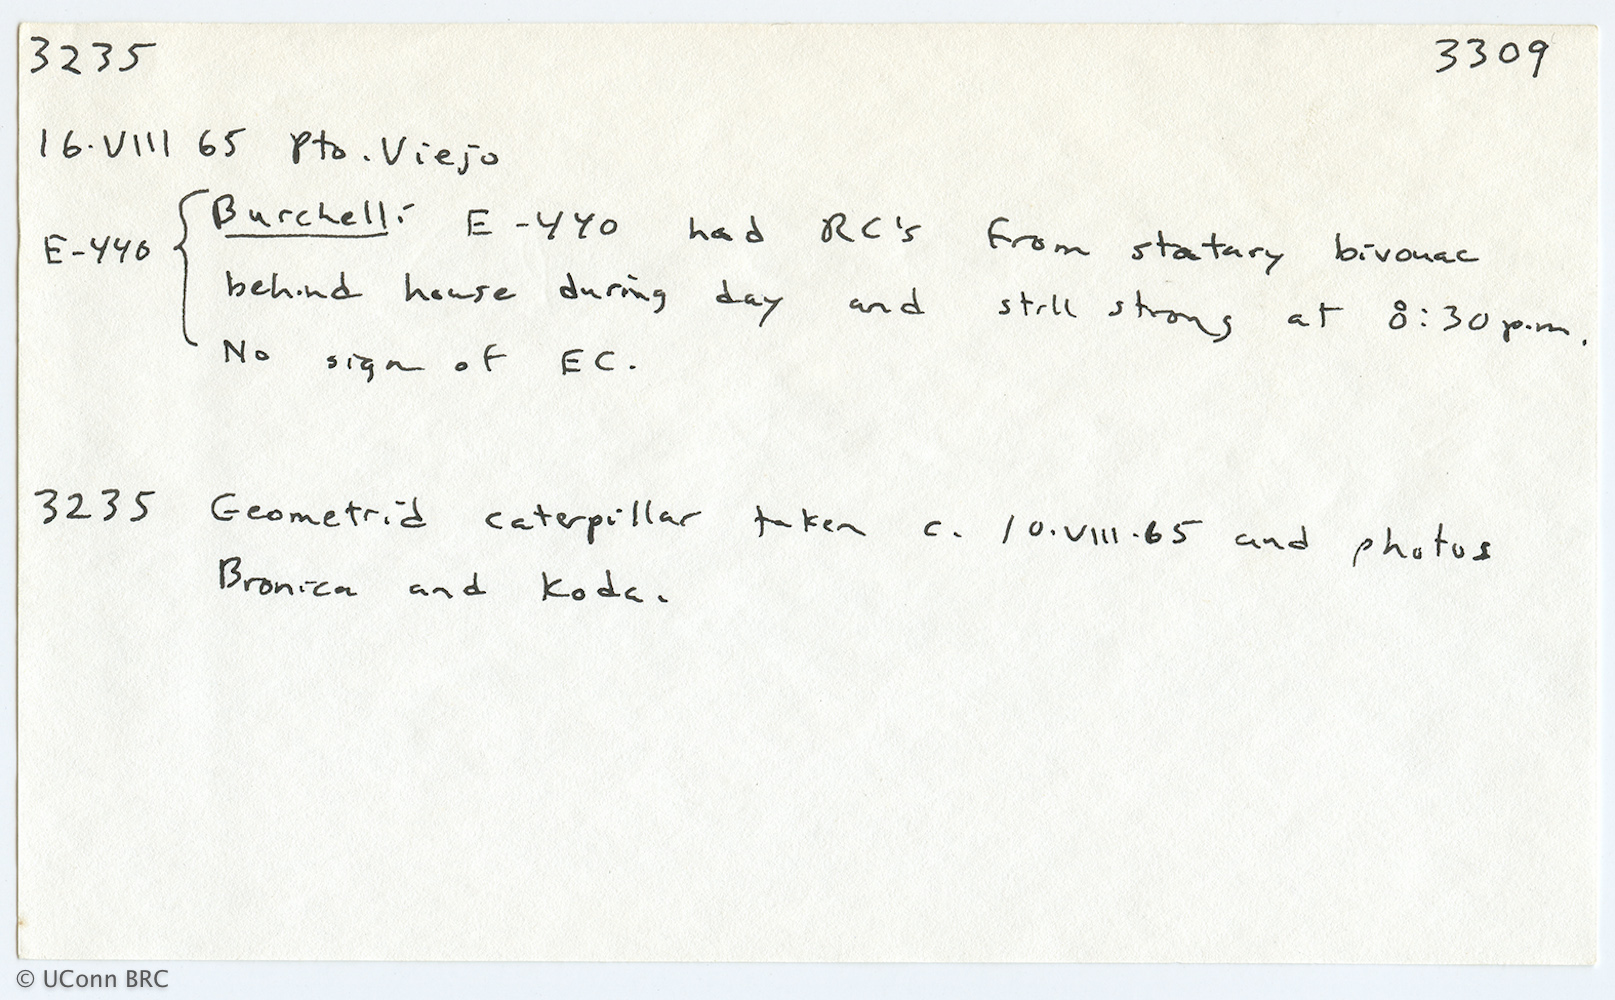 3235 3309
16.VIII 65 Pto. Viejo
E-440 { Burchelli E-440 had RC's from statary bivouac
behind house during day and still strong at 8:30 p.m.
No sign of EC.
3235 Geometrid caterpillar taken c. 10.VIII.65 and photos
Bronica and Koda.
© UConn BRC